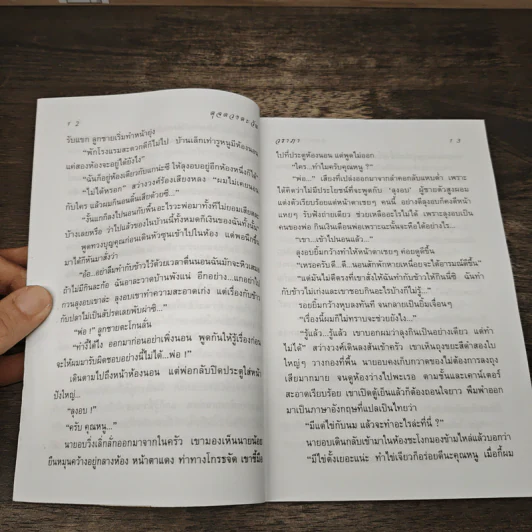 12
รับแขก ลูกชายเริ่มทำหน้ายุ่ง
"พักโรงแรมสะดวกดีก็ไม่ไป บ้านเล็กเท่ารูหนูมีห้องนอน
แค่สองห้องจะอยู่ได้ยังไง"
"ฉันก็อยู่ห้องเดียวกับแกน่ะซี ให้ลุงอบอยู่อีกห้องหนึ่งก็ได้"
"ไม่ได้หรอก" สว่างวงศ์ร้องเสียงหลง "ผมไม่เคยนอน
กับใคร แล้วผมก็นอนดิ้นเสียด้วยซี..."
บ้างเลยหรือ ว่าไปแล้วของในบ้านนี้ทั้งหมดก็เงินของฉันทั้งนั้น"
พูดทวงบุญคุณก่อนเดินหัวซุนเข้าไปในห้อง แต่พอนึกขึ้น
มาได้ก็หันมาสั่งว่า
"อ้อ...อย่าลืมทำกับข้าวไว้ด้วยเวลาตื่นนอนฉันมักจะหิวเสมอ
ถ้าไม่มีกินละก้อ ฉันอาละวาดบ้านพังแน่ อีกอย่าง...แกอย่าไป
กวนลุงอบเขาล่ะ ลุงอบเขาทำความสะอาดเก่ง แต่เรื่องกับข้าว
"พ่อ !" ลูกชายตะโกนลั่น
"ทำงี้ได้ไง ออกมาก่อนอย่าเพิ่งนอน พูดกันให้รู้เรื่องก่อน
จะให้ผมมารับผิดชอบอย่างนี้ไม่ได้...พ่อ !"
เดินตามไปถึงหน้าห้องนอน แต่พ่อกลับปิดประตูใส่หน้า
ปังใหญ่...
"ลุงอบ !"
"ครับ คุณหนู..."
นายอบวิ่งเล็กลั่กออกมาจากในครัว เขามองเห็นนายน้อย
ยืนหมุนคว้างอยู่กลางห้อง หน้าตาแดง ท่าทางโกรธจัด เขาชี้มือ
13
ไปที่ประตูห้องนอน แต่พูดไม่ออก
"ใคร...ทำไมครับคุณหนู ?"
"พ่อ..." เสียงที่เปล่งออกมาจากลำคอกลับแหบต่ำ เพราะ
ได้คิดว่าไม่มีประโยชน์ที่จะพูดกับ 'ลุงอบ' ผู้ชายตัวสูงผอม
แต่งตัวเรียบร้อยแต่หน้าตาเซยๆ คนนี้ อย่างดีลุงอบก็คงตีหน้า
แหยๆ รับฟังถ่ายเดียว ช่วยเหลืออะไรไม่ได้ เพราะลุงอบเป็น
คนของพ่อ กินเงินเดือนพ่อเพราะฉะนั้นจะหือได้อย่างไร...
"เขา...เข้าไปนอนแล้ว..."
ลุงอบยิ้มกว้างทำให้หน้าตาเซยๆ ค่อยดูดีขึ้น
"เหรอครับดี...ดี...นอนสักพักหายเหนื่อยจะได้อารมณ์ดีขึ้น"
"แต่มันไม่ดีตรงที่เขาสั่งให้ฉันทำกับข้าวให้กินนี่ซี ฉันทำ
กับข้าวไม่เก่งและเขาชอบกินอะไรบ้างก็ไม่รู้..."
รอยยิ้มกว้างหุบลงทันที จนกลายเป็นยิ้มเจื่อนๆ
"เรื่องนี้ผมก็ไม่ทราบจะช่วยยังไง..."
"รู้แล้ว...รู้แล้ว เขาบอกผมว่าลุงกินเป็นอย่างเดียว แต่ทำ
ไม่ได้" สว่างวงศ์เดินลงส้นเข้าครัว เขาเห็นถุงขยะสีดำสองใบ
ใหญ่ๆ วางกองที่พื้น นายอบคงเก็บกวาดของไม่ต้องการลงถุง
เสียมากมาย จนดูห้องว่างไปพะเรอ ตามชั้นและเคาน์เตอร์
สะอาดเรียบร้อย เขาเปิดตู้เย็นแล้วก็ต้องถอนใจยาว พึมพำออก
มาเป็นภาษาอังกฤษที่แปลเป็นไทยว่า
"มีแต่ไข่กับนม แล้วจะทำอะไรล่ะที่นี่ ?"
นายอบเดินกลับเข้ามาในห้องชะโงกมองข้ามไหล่แล้วบอกว่า
"มีไข่ตั้งเยอะแน่ะ ทำไข่เจียวก็อร่อยดีนะคุณหนู เมื่อกี้ผม